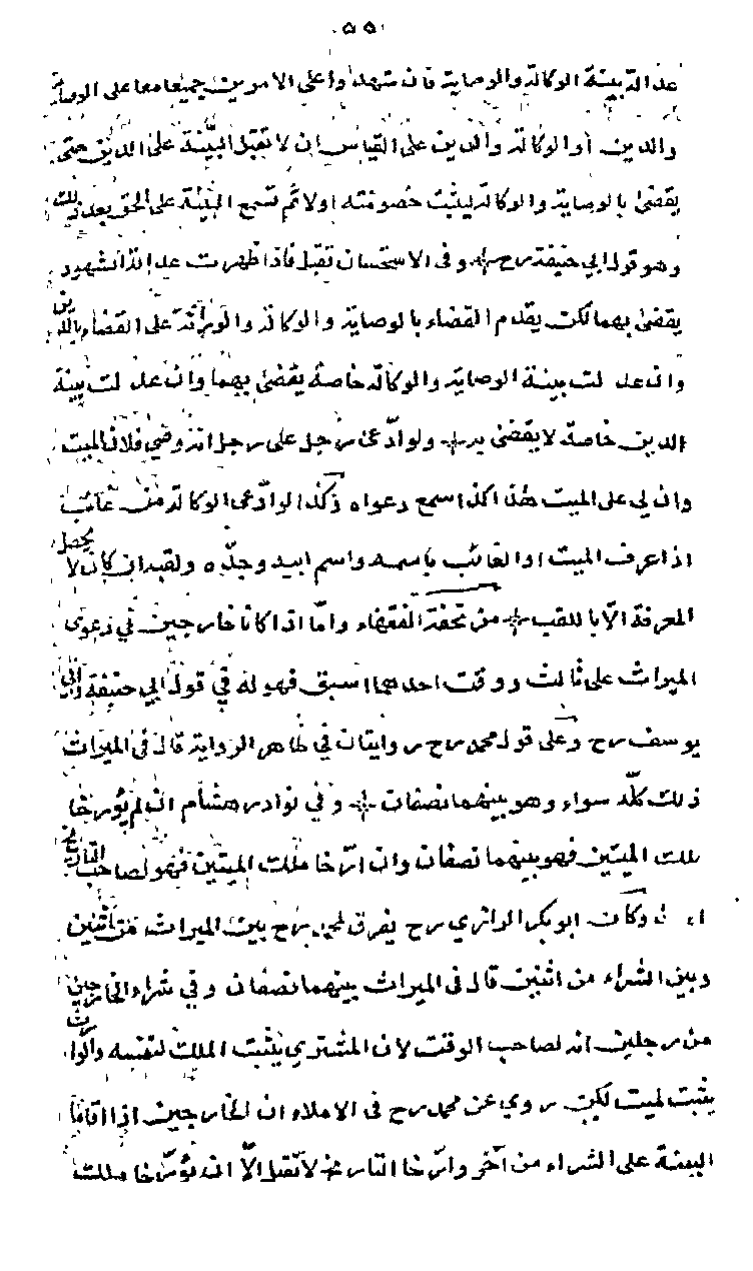 ٥٥
عدالة بينة الوكالة والوصاية فان شهدوا على الامرين جميعا معا على الوصاية
والدين او الوكالة والدين على القياس ان لا تقبل البينة على الدين حتى
يقضى بالوصاية والوكالة ليثبت خصومته اولا ثم تسمع البينة على الحق بعد ذلك
وهو قول ابي حنيفة رح وفي الاستحسان تقبل فاذا ظهرت عدالة الشهود
يقضى بهما لكن يقدم القضاء بالوصاية والوكالة والوراثة على القضاء بالدين
وان عدلت بينة الوصاية والوكالة خاصة يقضى بهما وان عدلت بينة
الدين خاصة لا يقضى به ولو ادعى رجل على رجل انه وصي فلان الميت
وان لي على الميت هذا كذا سمع دعواه وكذا لو ادعى الوكالة من غائب
اذا عرف الميت او الغائب باسمه واسم ابيه وجده ولقبه ان كان لا يحصل
المعرفة الا باللقب من تحفة الفقهاء واما اذا كانا خارجين في دعوى
الميراث على ثالث ووقت احدهما اسبق فهو له في قول ابي حنيفة وابي
يوسف رح وعلى قول محمد رح روايتان في ظاهر الرواية قال في الميراث
ذلك كله سواء وهو بينهما نصفان وفي نوادر هشام ان لم يؤرخا
ملك الميتين فهو بينهما نصفان وان ارخا ملك الميتين فهو لصاحب التاريخ
وكان ابو بكر الرازي رح يفرق لمحمد رح بين الميراث من اثنين
وبين الشراء من اثنين قال في الميراث بينهما نصفان وفي شراء الخارجين
من رجلين انه لصاحب الوقت لان المشتري يثبت الملك لنفسه والوارث
يثبت لميت لكن روي عن محمد رح في الاملاء ان الخارجين اذا اقاما
البينة على الشراء من آخر وارخا التاريخ لا تقبل الا ان يؤرخا ملك